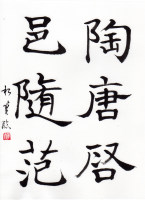 陶唐启
邑隨范